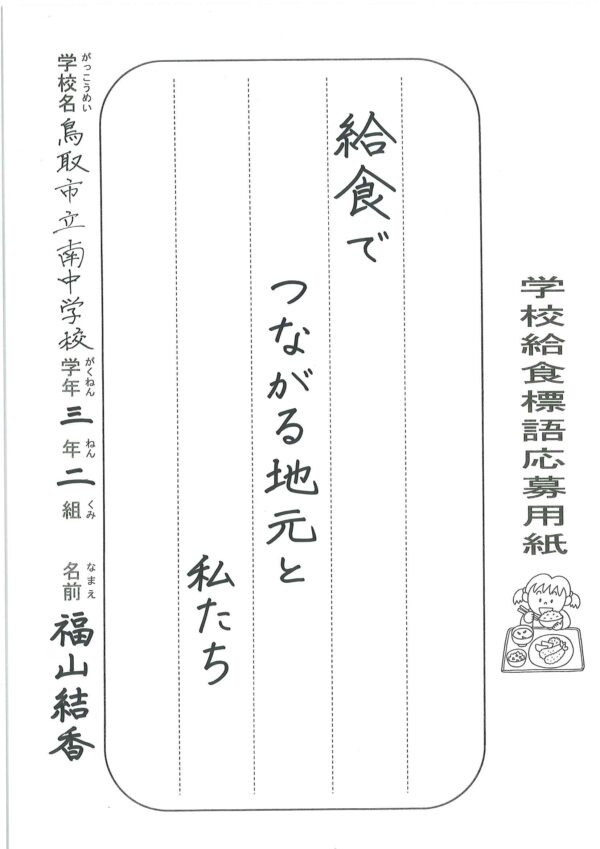 学校給食標語応募用紙
給食で
つながる地元と
私たち
学校名 鳥取市立南中学校 学年 三年 二組 名前 福山結香
がっこうめい がくねん ねん くみ なまえ